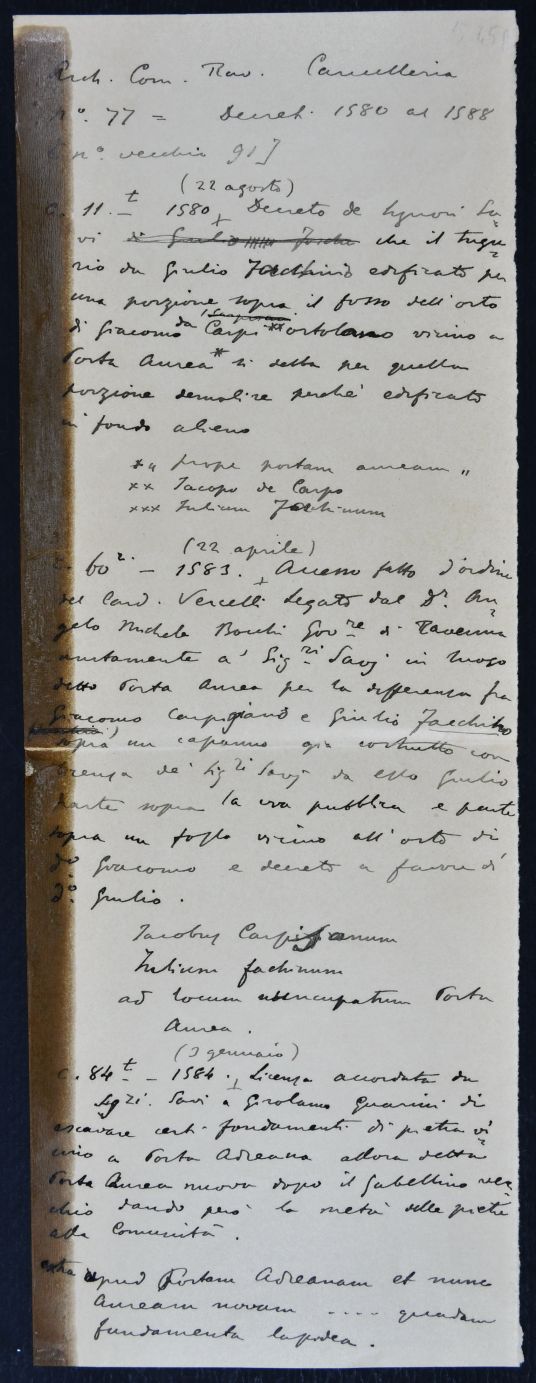 Arch. Com. Rav. Cancelleria
n°. 77 = Decret. 1580 al 1588
[n°. vecchio 91]
(22 agosto)
c. 11.t 1580 + Decreto de signori Sa-
vi di Giulio che il tugu-
rio da Giulio Fachinio edificato per
una porzione sopra il fosso dell'orto
di Giacomo da Carpi ** ortolano vicino a
Porta Aurea * si debba per quella
porzione demolire perchè edificato
in fondo alieno
* " prope portam auream "
** Jacopo de Carpo
*** Iulium Fachinum
(22 aprile)
c. 60 - 1583. + Accesso fatto d'ordine
del Card. Vercelli Legato dal Dr. An-
gelo Michele Bocchi Gov.re di Ravenna
unitamente a' Sig.ri Savj in luogo
detto Porta Aurea per la differenza fra
Giacomo Carpigiano e Giulio Facchino
sopra un capanno già costrutto con
licenza de' Sig.ri Savj da esso Giulio
parte sopra la via pubblica e parte
sopra un fosso vicino all'orto di
d.o Giacomo e decreto a favore di
d.o Giulio.
Jacobus Carpisanum
Iulium fachinum
ad locum nuncupatum Porta
Aurea.
(3 gennaio)
c. 84.t - 1584. + Licenza accordata da
Sig.ri Savi a Girolamo Guarini di
escavare certi fondamenti di pietra vi-
cino a Porta Adreana allora detta
Porta Aurea nuova dopo il Gabellino vec-
chio dando però la metà delle pietre
alla Comunità.
extra apud Portam Adreanam et nunc
Auream novam .... quedam
fundamenta lapidea.